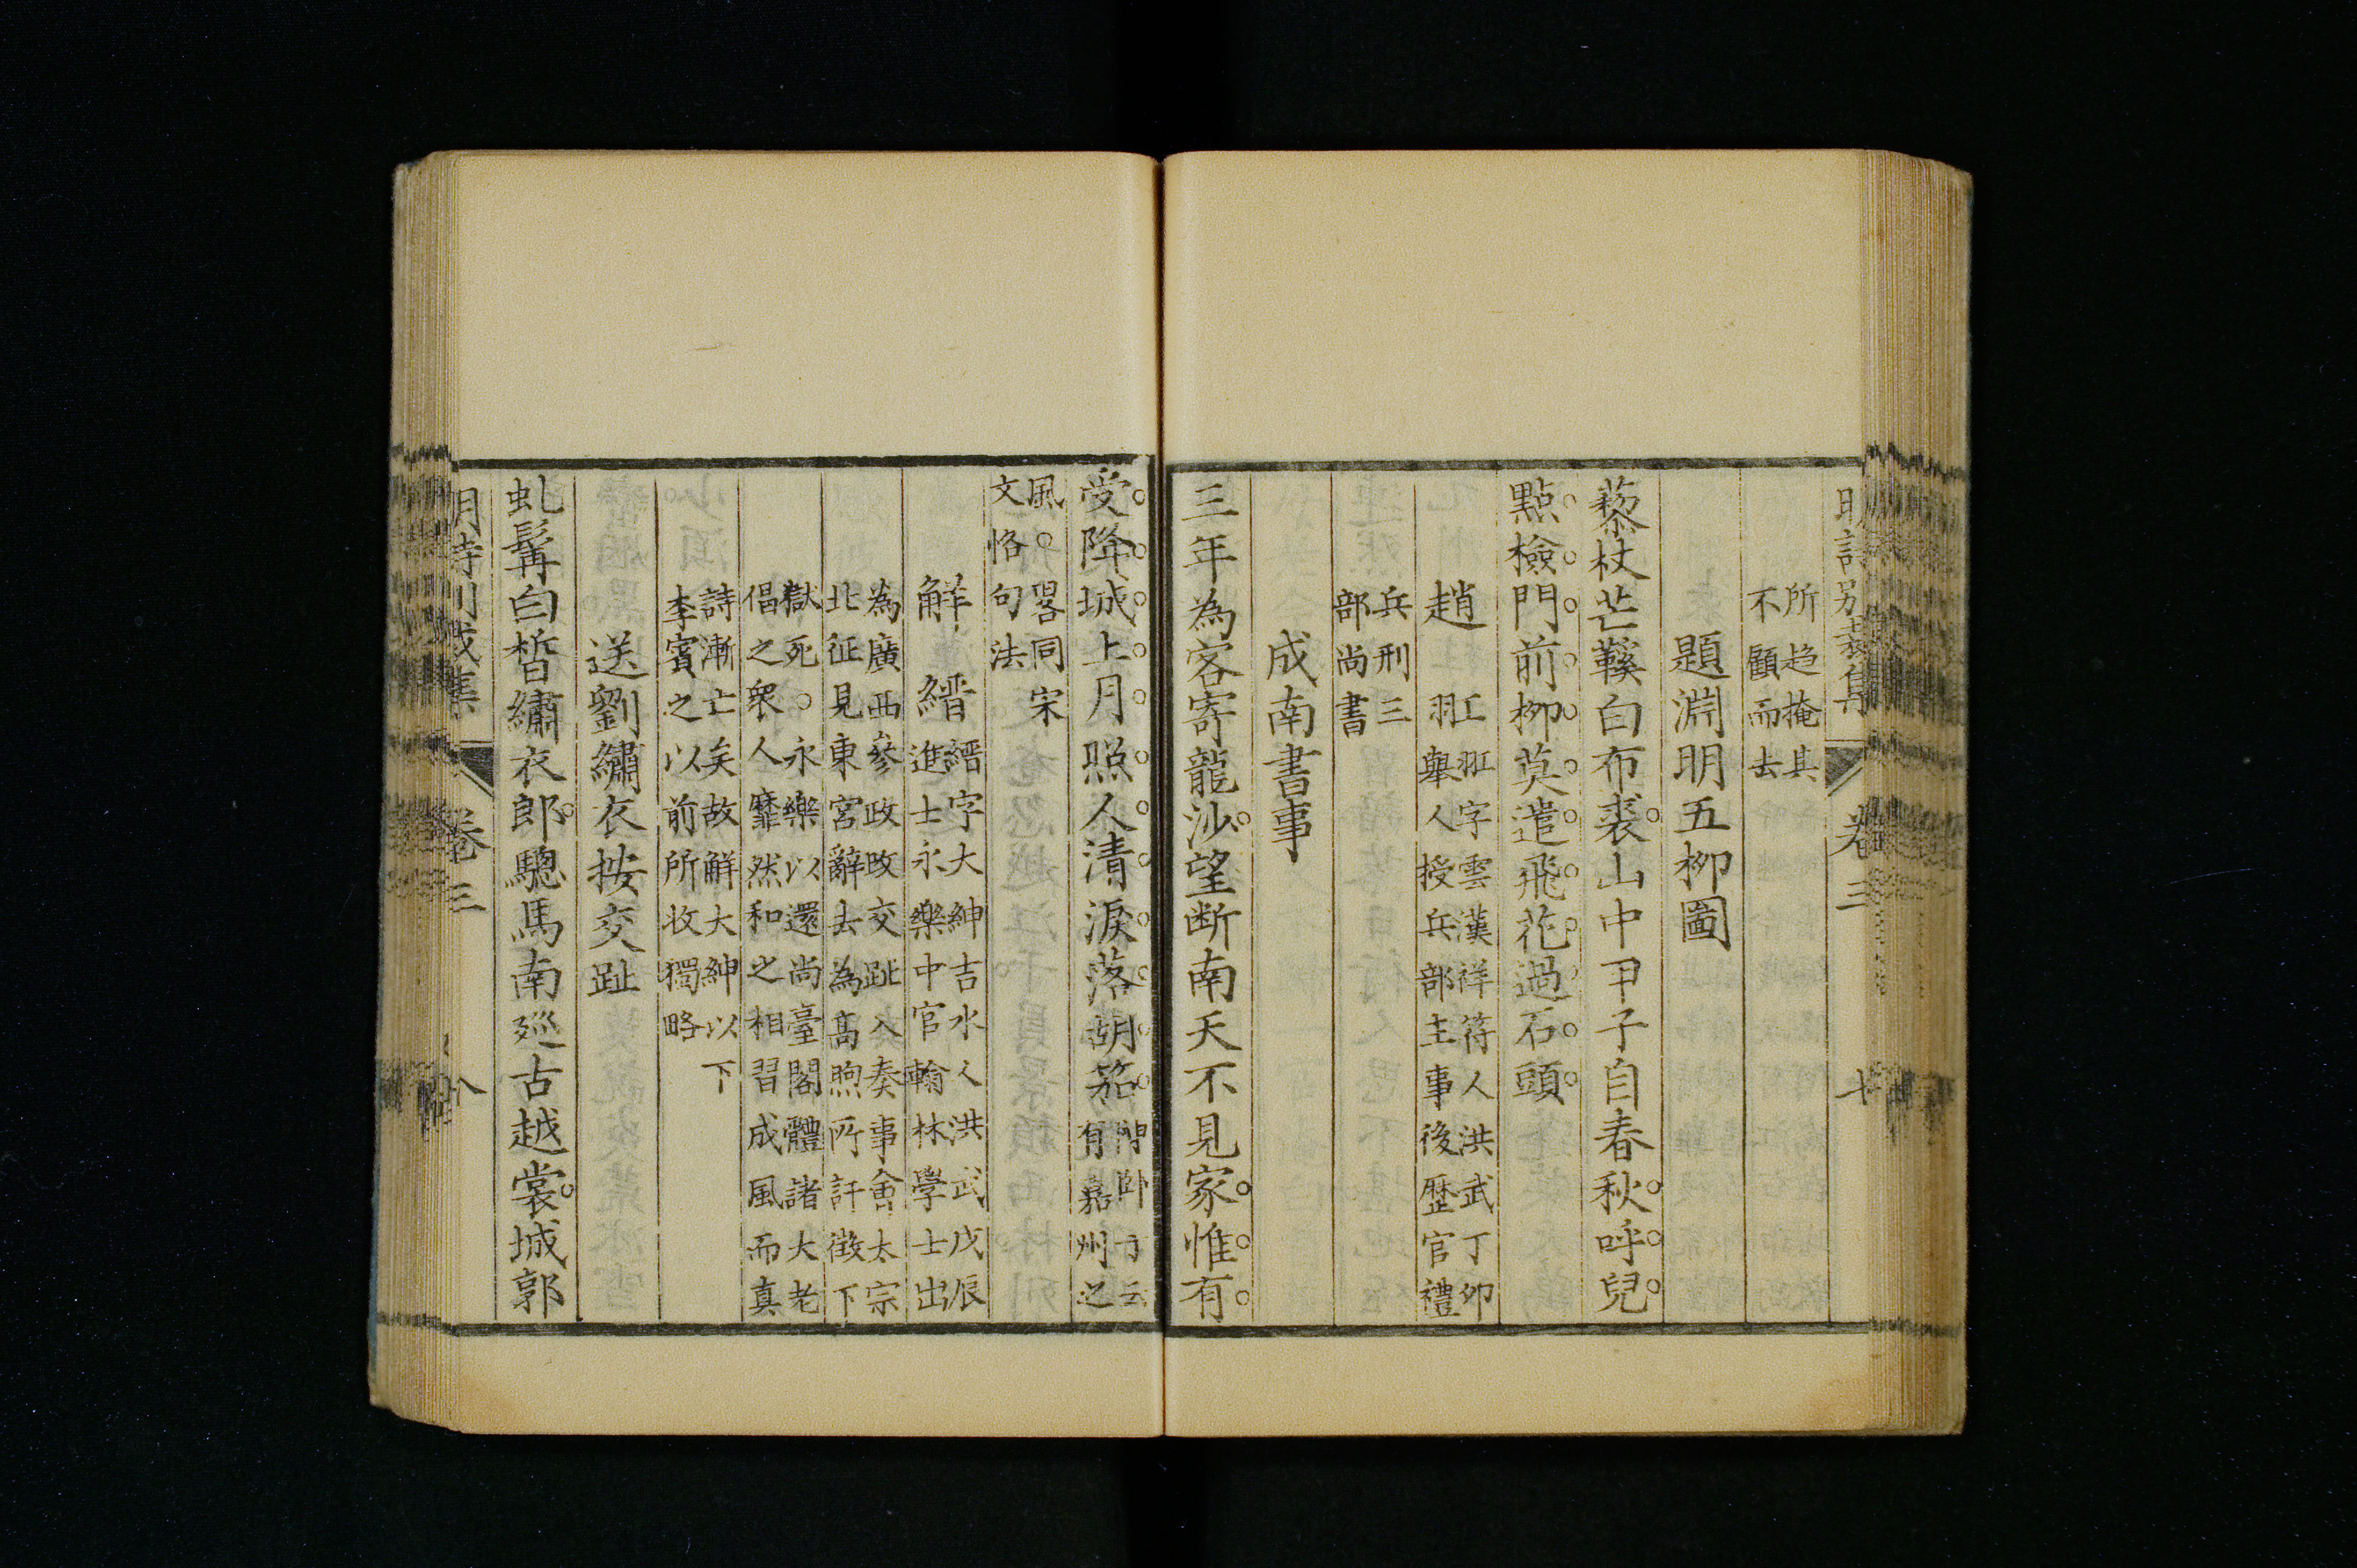 明詩別裁集 卷三 七
所趋掩其
不顧而去
題淵明五栁圖
藜杖芒鞵白布裘山中甲子自春秋呼兒
點檢門前栁莫遣飛花過石頭
趙 羾
羾字雲漢祥符人洪武丁卯
舉人授兵部主事後歷官禮
兵刑三
部尚書
成南書事
三年為客寄龍沙望断南天不見家惟有
受降城上月照人清淚落胡笳
有嘉州之
風畧同宋
文恪句法
解 縉
縉字大紳吉水人洪武戊辰
進士永樂中官翰林學士出
為廣西叅政改交趾入奏事會太宗
北征見東宮辭去為高煦所訐徵下
獄死永樂以還尚臺閣體諸大老
倡之衆人靡然和之相習成風而真
詩漸亡矣故解大紳以下
李賓之以前所收獨略
送劉繡衣按交趾
虬髯白晳繡衣郎驄馬南廵古越裳城郭
明詩別裁集 卷三 八